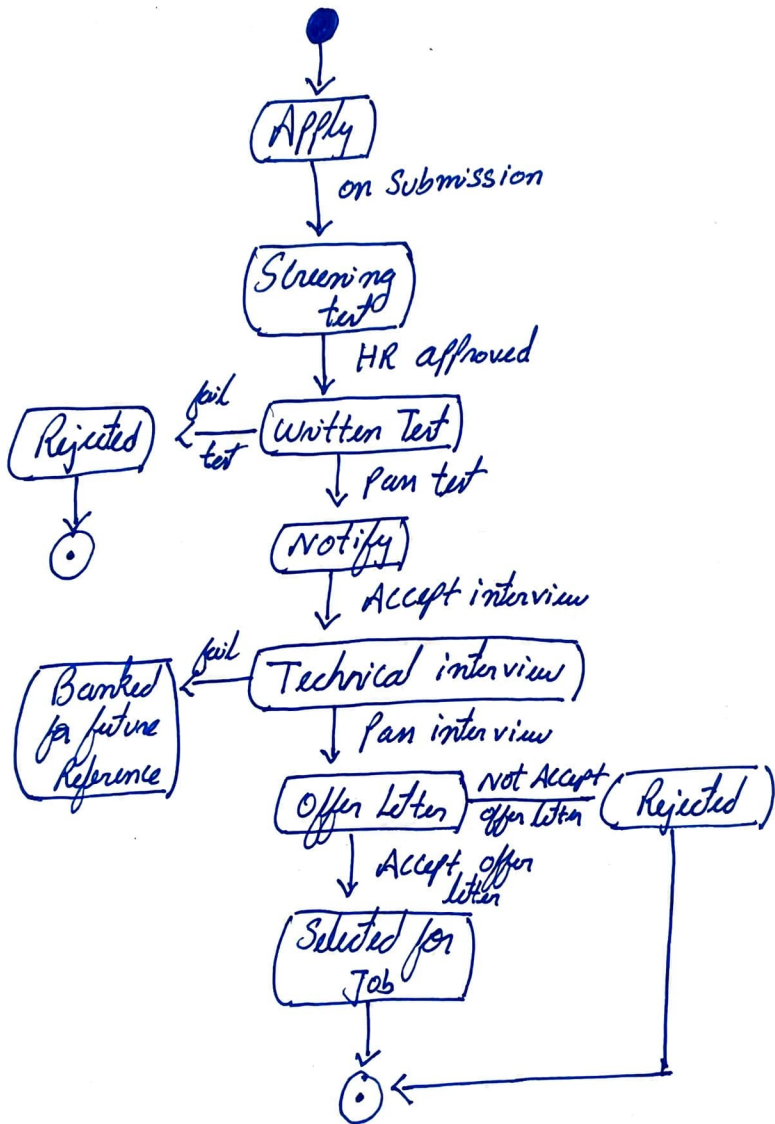 Apply
on Submission
Screening
test
HR approved
fail
test
Rejected
Written Test
Pass test
Notify
Accept interview
fail
Technical interview
Banked
for future
Reference
Pass interview
Offer Letter
Not Accept
offer letter
Rejected
Accept offer
letter
Selected for
Job